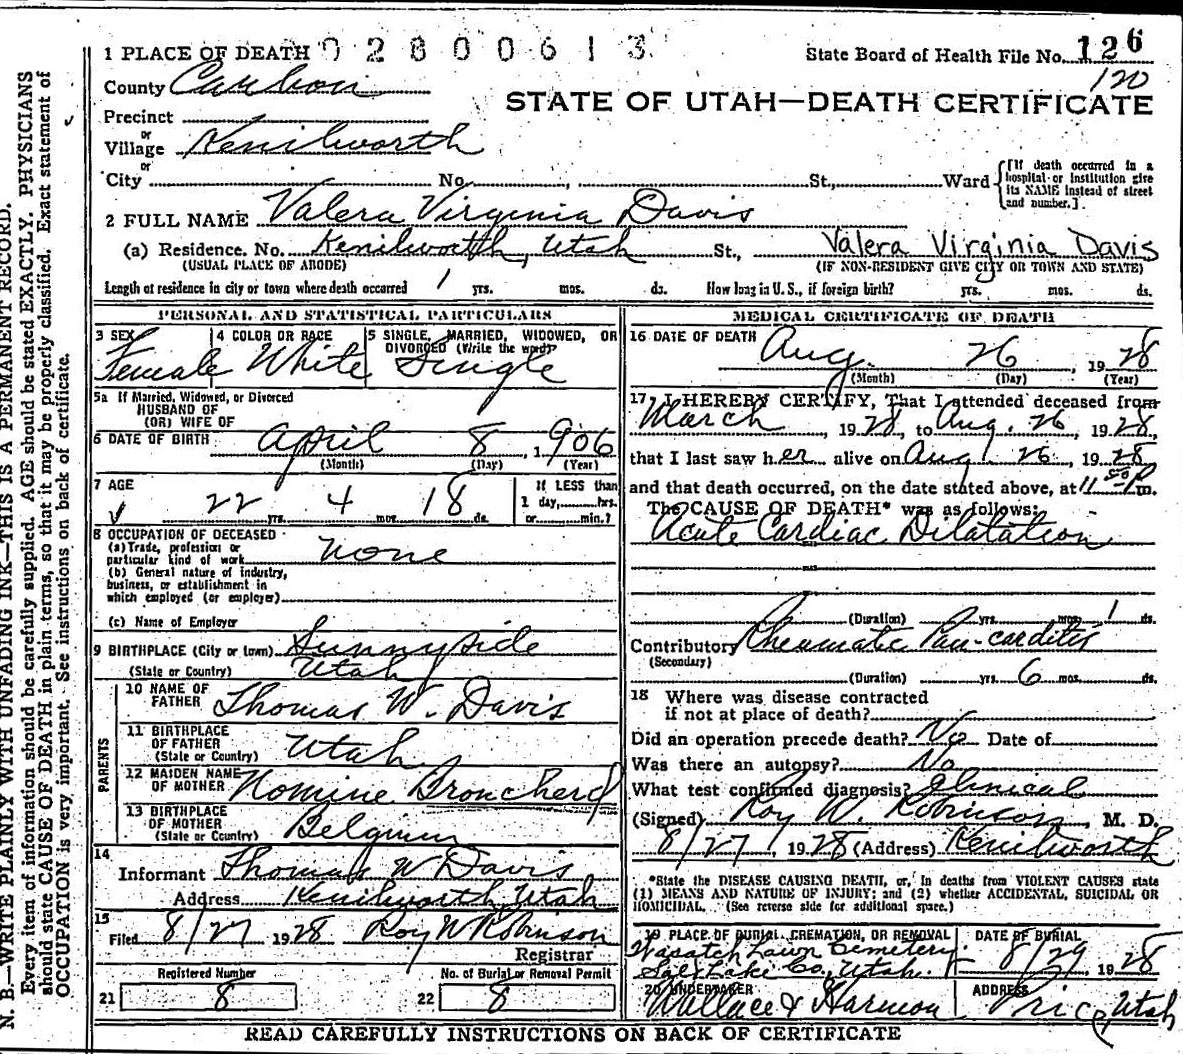 1 PLACE OF DEATH 0 2 8 0 0 6 1 3
State Board of Health File No. 126
120
County Carbon
STATE OF UTAH—DEATH CERTIFICATE
Precinct
or
Village Kenilworth
or
City No. , St., Ward
[If death occurred in a hospital or institution give its NAME instead of street and number.]
2 FULL NAME Valera Virginia Davis
(a) Residence. No. Kenilworth, Utah St., Valera Virginia Davis
(USUAL PLACE OF ABODE) (IF NON-RESIDENT GIVE CITY OR TOWN AND STATE)
Length of residence in city or town where death occurred 1 yrs. mos. ds. How long in U. S., if foreign birth? yrs. mos. ds.
PERSONAL AND STATISTICAL PARTICULARS
3 SEX 4 COLOR OR RACE 5 SINGLE, MARRIED, WIDOWED, OR DIVORCED (Write the word)
Female White Single
5a If Married, Widowed, or Divorced
HUSBAND OF
(OR) WIFE OF
6 DATE OF BIRTH April 8, 1906
(Month) (Day) (Year)
7 AGE If LESS than
22 yrs. 4 mos. 18 ds. 1 day, hrs.
or min.?
8 OCCUPATION OF DECEASED
(a) Trade, profession or
particular kind of work none
(b) General nature of industry,
business, or establishment in
which employed (or employer)
(c) Name of Employer
9 BIRTHPLACE (City or town) Sunnyside
(State or Country) Utah
PARENTS
10 NAME OF
FATHER Thomas W. Davis
11 BIRTHPLACE
OF FATHER Utah
(State or Country)
12 MAIDEN NAME
OF MOTHER Nomine Broncherd
13 BIRTHPLACE
OF MOTHER
(State or Country) Belgium
14
Informant Thomas W Davis
Address Kenilworth, Utah
15
Filed 8/27 1928 Roy W Robinson
Registrar
Registered Number No. of Burial or Removal Permit
21 8 22 8
MEDICAL CERTIFICATE OF DEATH
16 DATE OF DEATH Aug. 26, 1928
(Month) (Day) (Year)
17 I HEREBY CERTIFY, That I attended deceased from
March , 1928, to Aug. 26, 1928,
that I last saw her alive on Aug. 26, 1928
and that death occurred, on the date stated above, at 11 50 P m.
The CAUSE OF DEATH* was as follows:
Acute Cardiac Dilatation
(Duration) yrs. mos. 1 ds.
Contributory Rheumatic Pan-carditis
(Secondary)
(Duration) yrs. 6 mos. ds.
18 Where was disease contracted
if not at place of death?
Did an operation precede death? No Date of
Was there an autopsy? No
What test confirmed diagnosis? Clinical
(Signed) Roy W. Robinson, M. D.
8/27, 1928 (Address) Kenilworth
*State the DISEASE CAUSING DEATH, or, in deaths from VIOLENT CAUSES state
(1) MEANS AND NATURE OF INJURY; and (2) whether ACCIDENTAL, SUICIDAL OR
HOMICIDAL. (See reverse side for additional space.)
19 PLACE OF BURIAL, CREMATION, OR REMOVAL DATE OF BURIAL
Wasatch Lawn Cemetery
Salt Lake Co, Utah. 8/29 1928
20 UNDERTAKER ADDRESS
Wallace & Harmon Price, Utah
READ CAREFULLY INSTRUCTIONS ON BACK OF CERTIFICATE
N. B.—WRITE PLAINLY WITH UNFADING INK—THIS IS A PERMANENT RECORD.
Every item of information should be carefully supplied. AGE should be stated EXACTLY. PHYSICIANS
should state CAUSE OF DEATH in plain terms, so that it may be properly classified. Exact statement of
OCCUPATION is very important. See instructions on back of certificate.